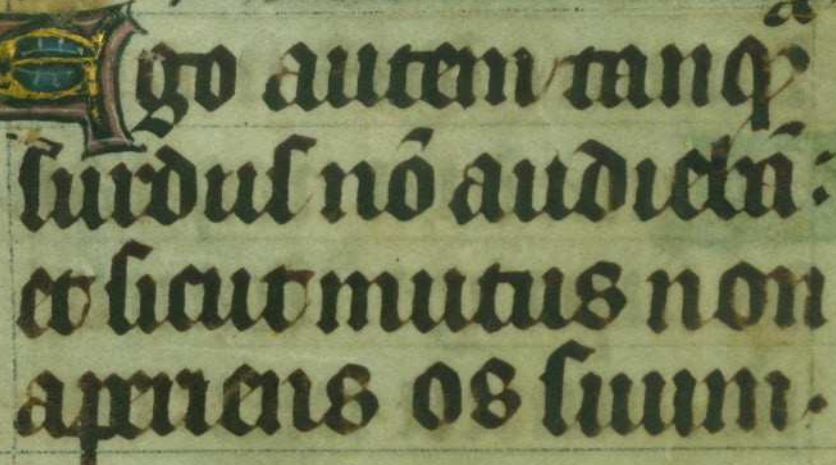 Ego autem tanqͣ
surdus nō audiebā:
et sicut mutus non
aperiens os suum.